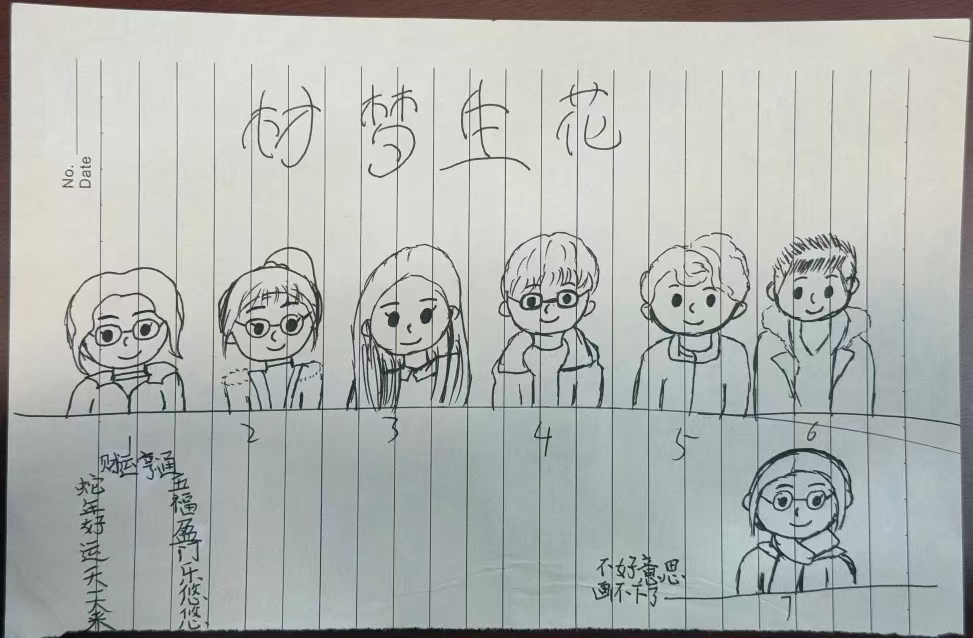 No.
Date
树梦生花
1 2 3 4 5 6
财运亨通
蛇年好运天天来
五福盈门乐悠悠
不好意思
画不下了
7